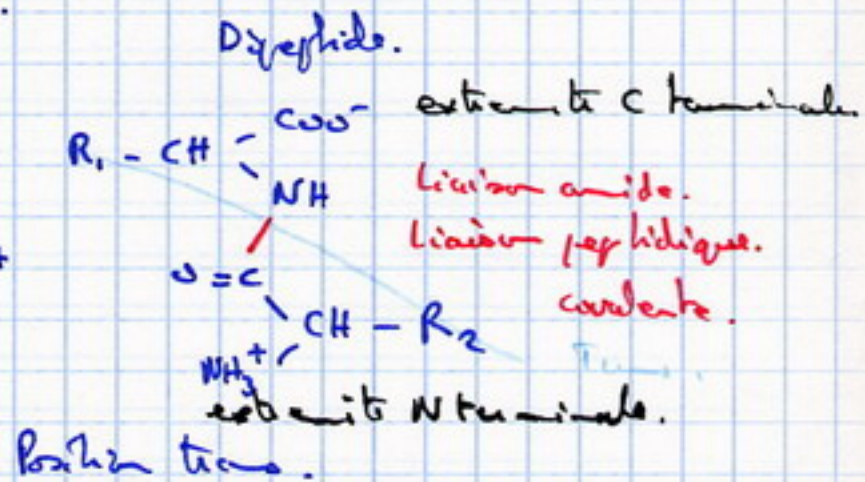 Dipeptide.
COO⁻ extremité C terminale.
R₁ - CH
NH Liaison amide.
Liaison peptidique.
O = C
covalente.
CH - R₂
NH₃⁺
extremité N terminale.
Position trans.